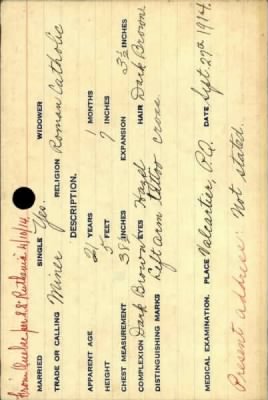 From Quebec per S.S. Ruthenia 4/10/14.
MARRIED SINGLE Yes. WIDOWER
TRADE OR CALLING Miner RELIGION Roman Catholic
DESCRIPTION.
APPARENT AGE 21 YEARS 1 MONTHS
HEIGHT 5 FEET 7 INCHES
CHEST MEASUREMENT 38½ INCHES EXPANSION 3½ INCHES
COMPLEXION Dark Brown EYES Hazel HAIR Dark Brown
DISTINGUISHING MARKS Left arm tattoo cross.
MEDICAL EXAMINATION. PLACE Valcartier, P.Q. DATE Sept 27th 1914.
Present address: Not stated.